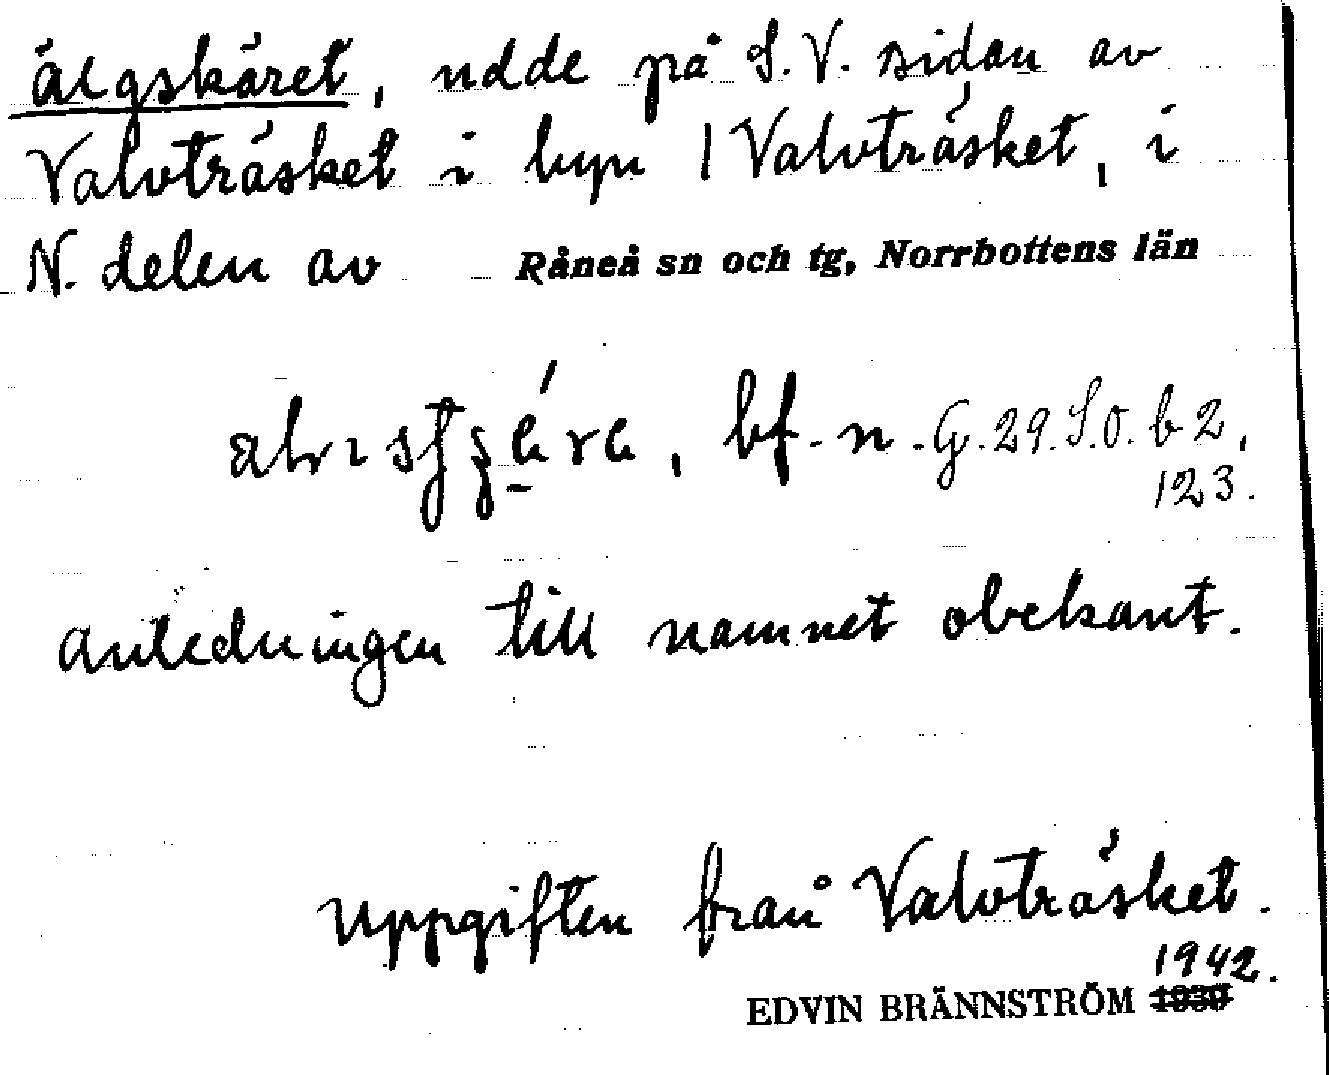 älgskäret, udde på S.V. sidan av
Valvträsket i byn / Valvträsket, i
N. delen av Råneå sn och tg, Norrbottens län
bf. n. G. 29. S.O. b 2,
123.
Anledningen till namnet obekant.
Uppgiften från Valvträsket.
1942.
EDVIN BRÄNNSTRÖM 1939